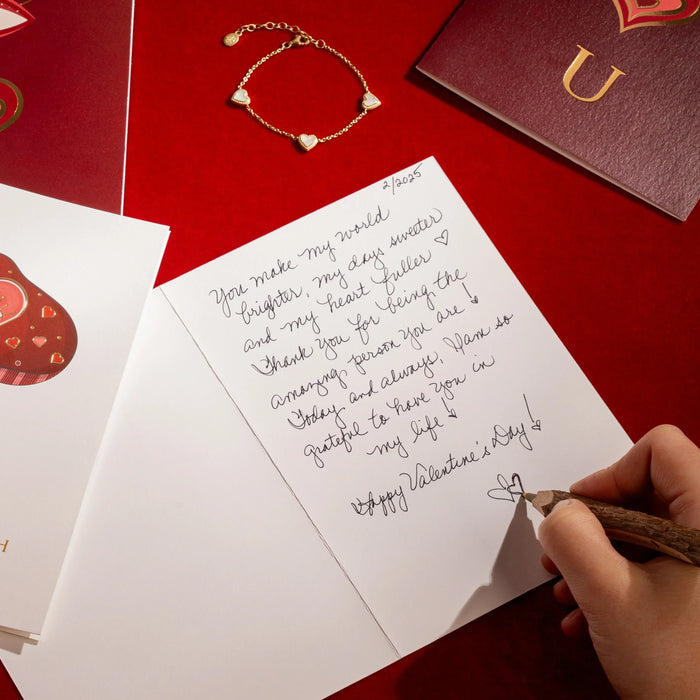 2/2025
You make my world
brighter, my days sweeter
and my heart fuller
Thank you for being the
amazing person you are!
Today and always, I am so
grateful to have you in
my life!
Happy Valentine's Day!
U
H